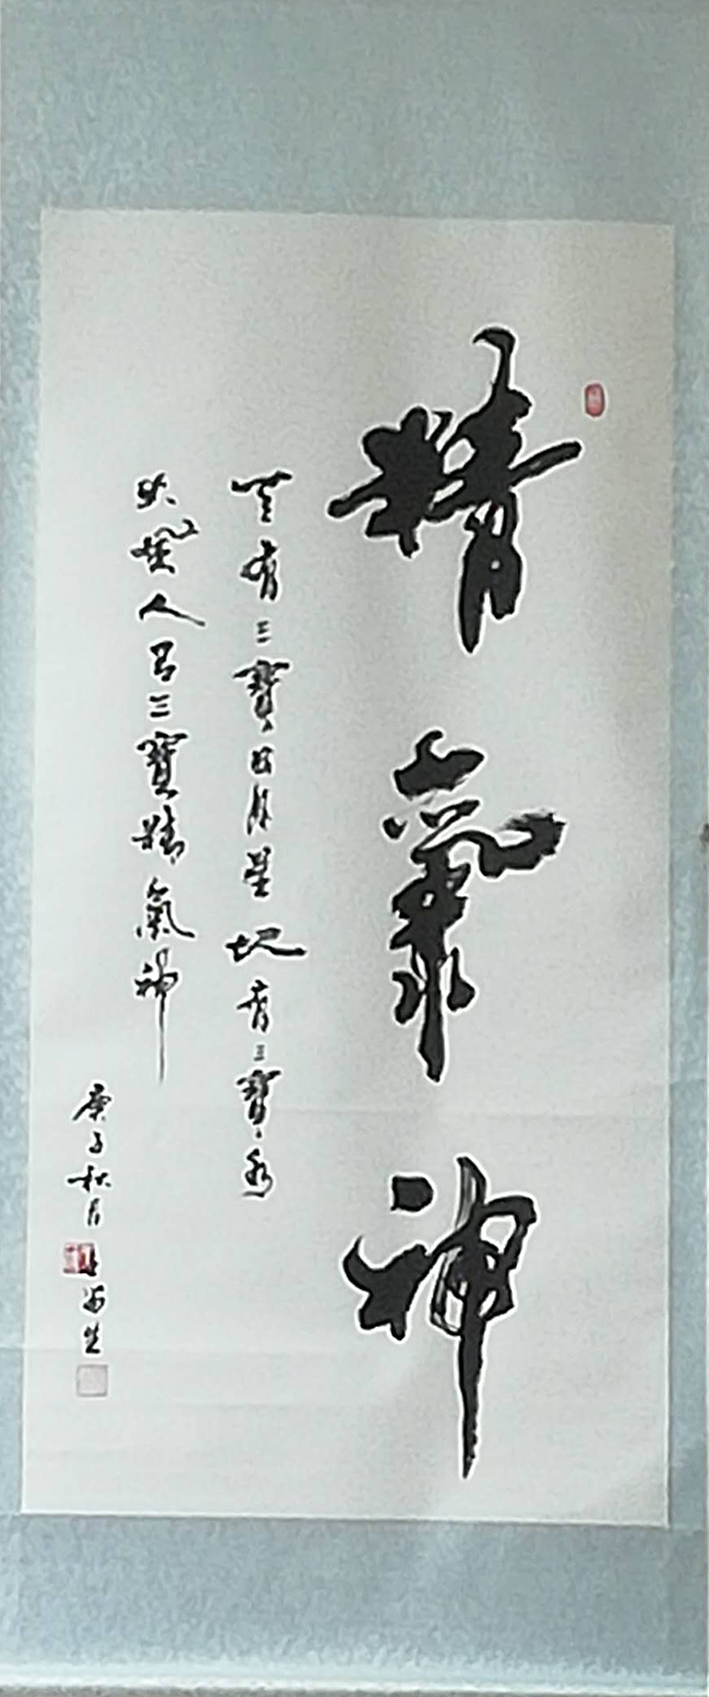 精氣神
天有三寶日月星地有三寶水
火風人有三寶精氣神
庚子秋月
海生